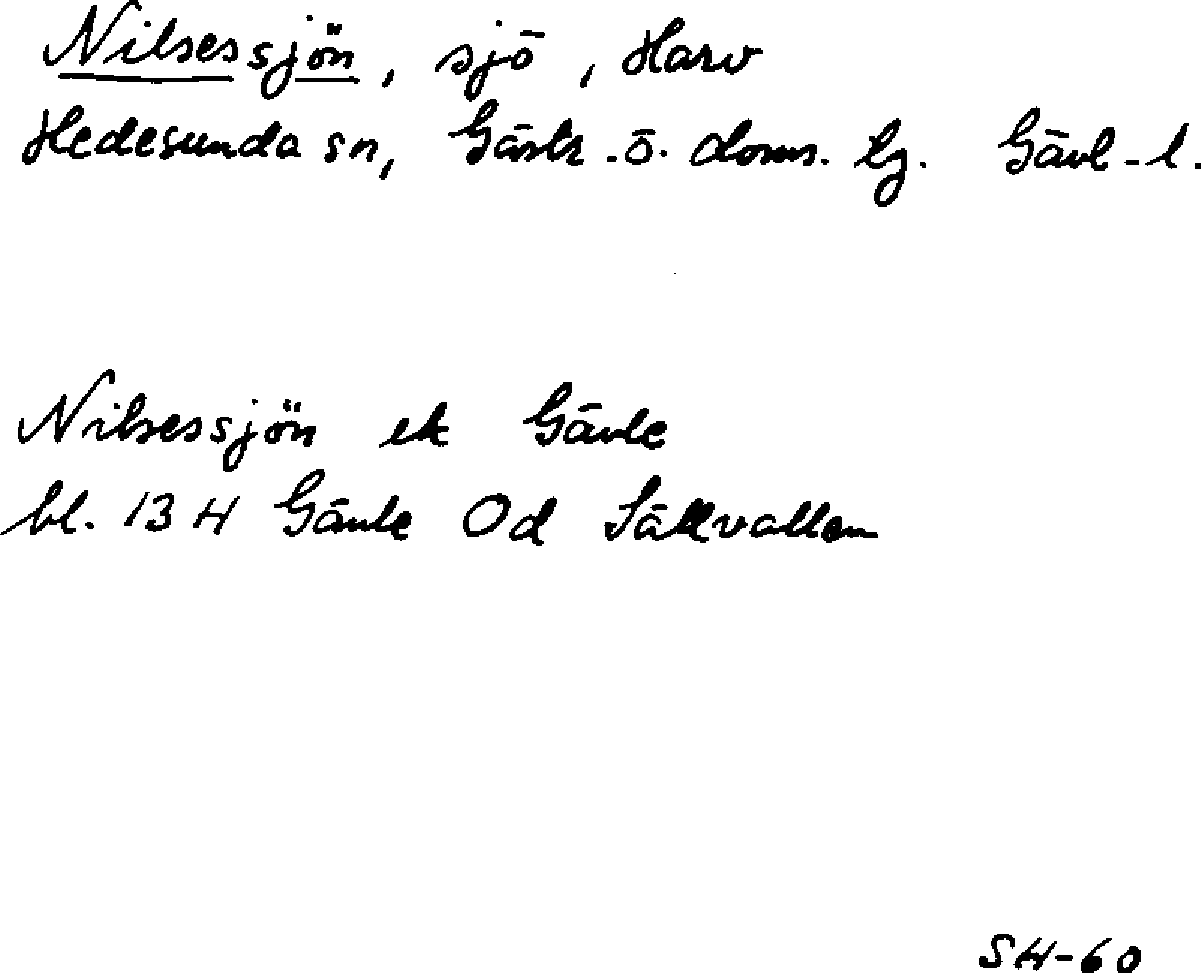 Nilsessjön, sjö, Harv
Hedesunda sn, Gästr.-ö. doms. lg. Gävl-l.
Nilsessjön ek Gävle
bl. 13 H Gävle Od Sälkvallen
SH-60